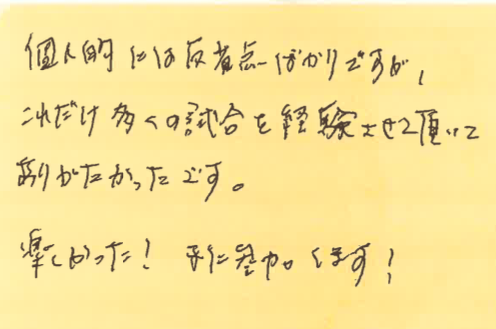 個人的には反省点ばかりですが、
これだけ多くの試合を経験させて頂いて
ありがたかったです。
楽しかった! 又に参加します!